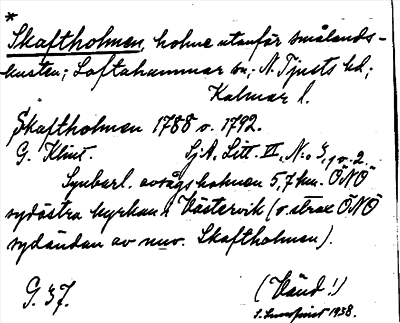 *
Skaftholmen, holme utanför smålands-
kusten; Loftahammar sn; N. Tjusts hd;
Kalmar l.
Skaftholmen 1788 o. 1792.
G. Klint. SjA. Litt. VI, N:o 3, 1 o. 2.
Synbarl. avsågs holmen 5,7 km. ÖNÖ
sydöstra kyrkan i Västervik (o. strax ÖNÖ
sydändan av nuv. Skaftholmen).
G. 37. (Vänd!)
1938.